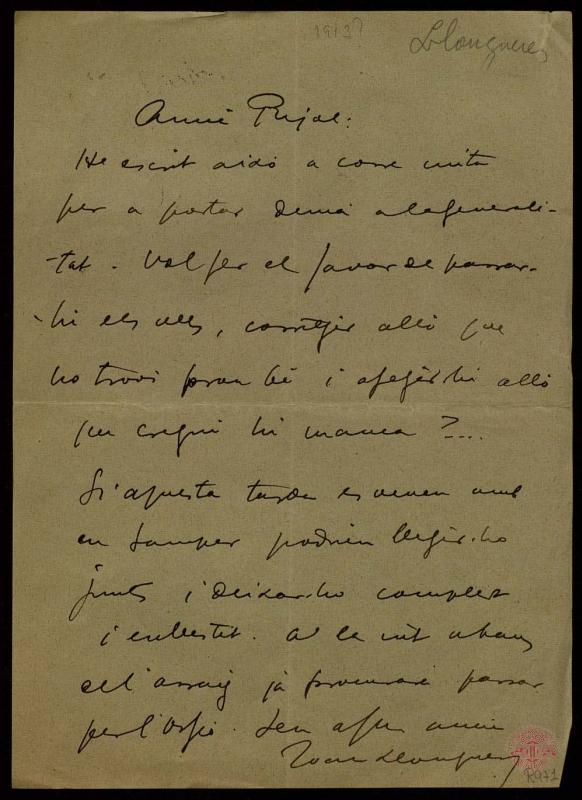 1913?
Llongueres
Amic Pujol:
He escrit aixó a corre cuita
per a portar demá a la generali-
tat. Vol fer el favor de passar-
hi els ulls, corretgir alló que
no trovi prou bé i afegir-hi alló
que cregui hi manca?...
Si aquesta tarda es veuen amb
en Samper podrien llegir-ho
junts i deixar-ho complert
i enllestit. A la nit abans
de l'assaig ja procuraré passar
per l'Orfeó. Seu affm amic
Joan Llongueres
R971